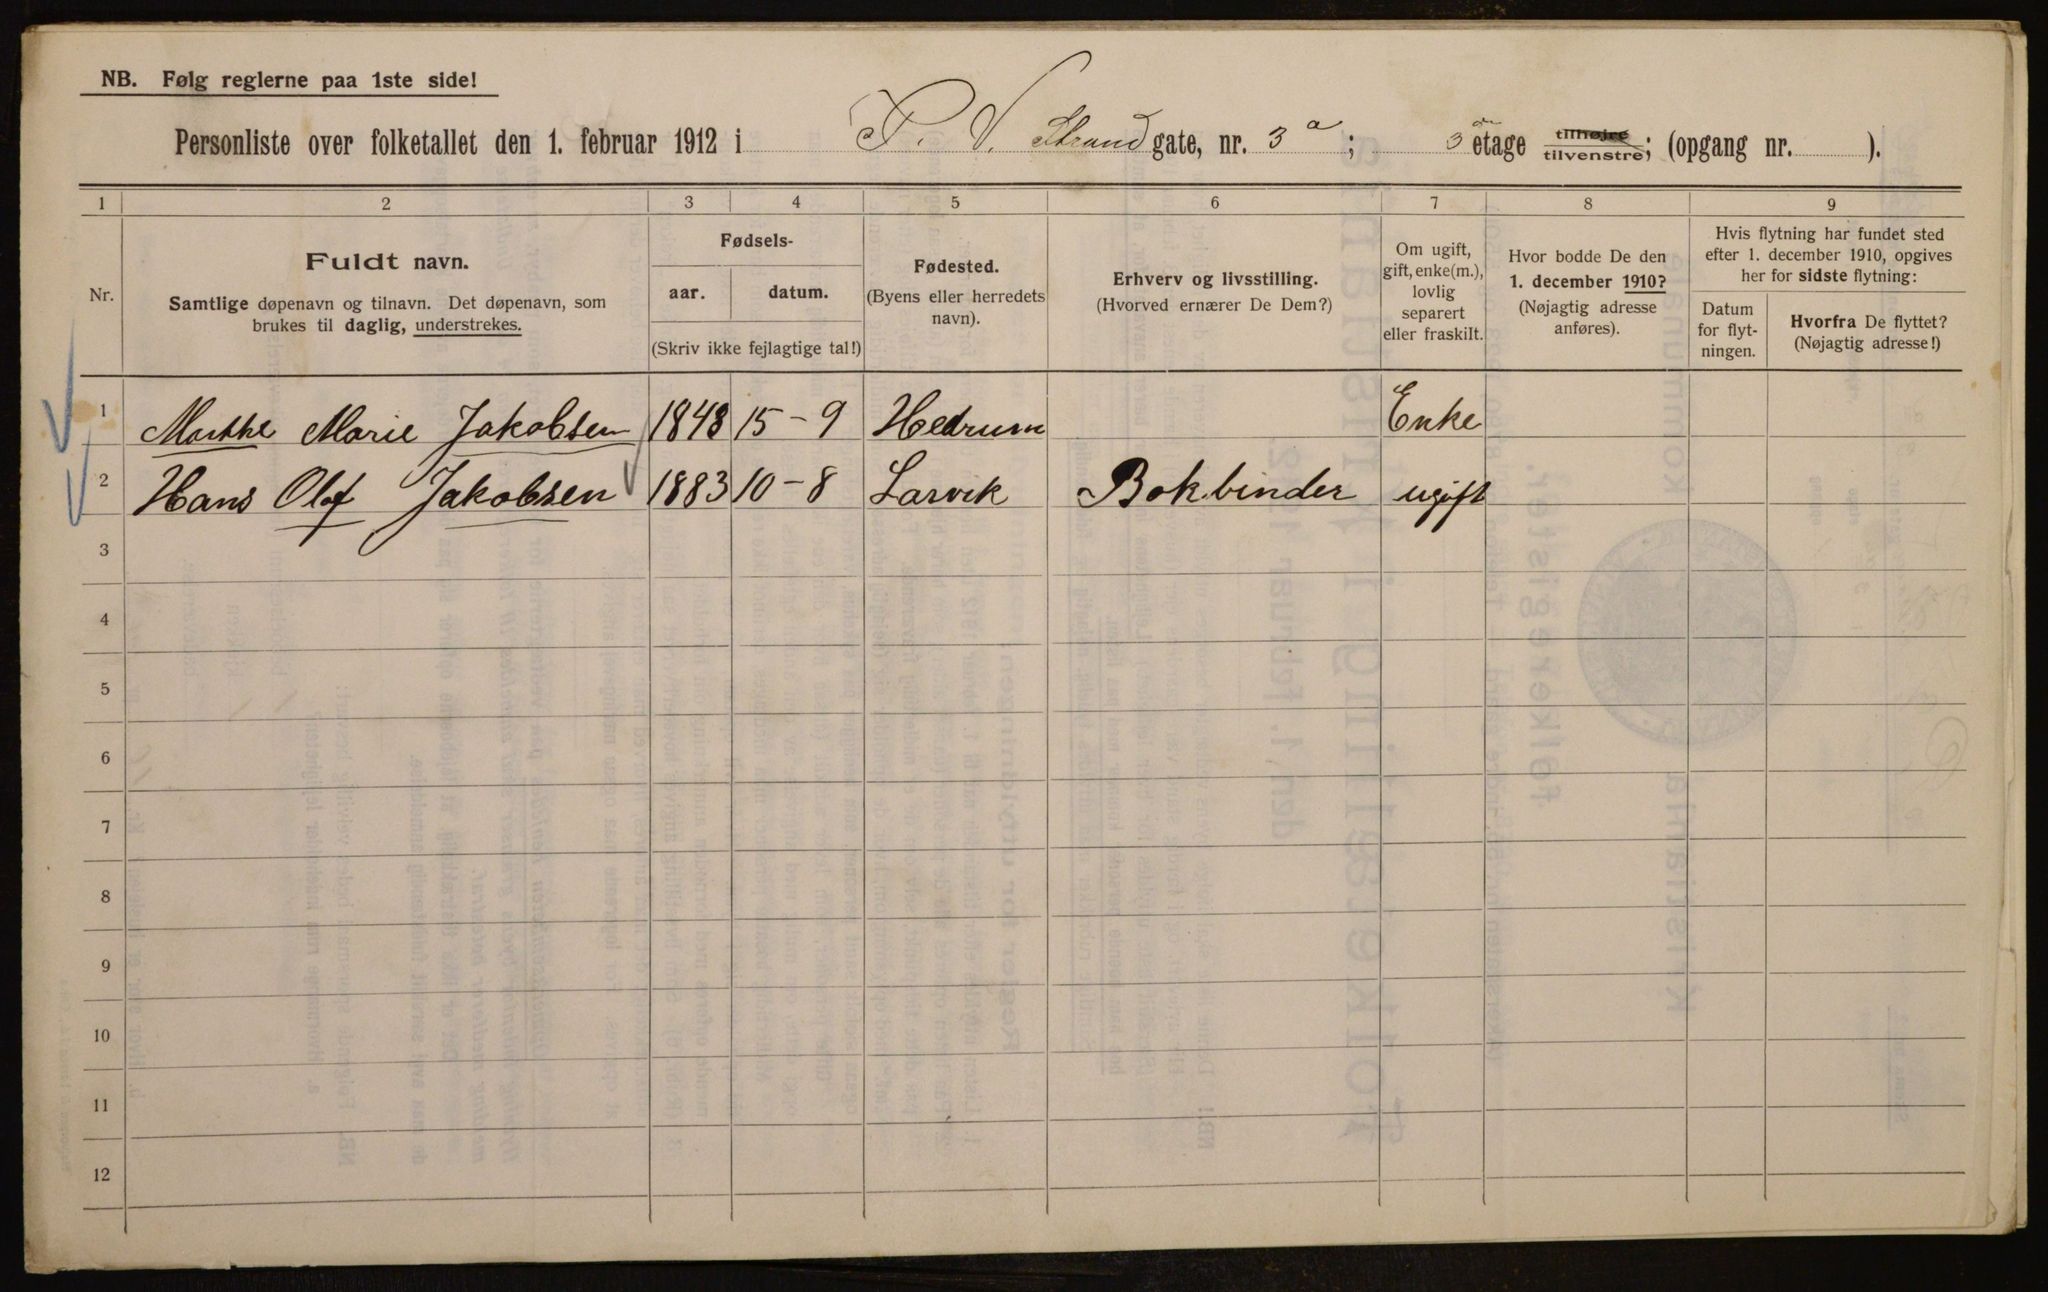 NB. Følg reglerne paa 1ste side!
Personliste over folketallet den 1. februar 1912 i P. V. Strand gate, nr. 3 a; 3 de etage tilhøjre tilvenstre; (opgang nr. ).
1 2 3 4 5 6 7 8 9
Nr.
Fuldt navn.
Samtlige døpenavn og tilnavn. Det døpenavn, som
brukes til daglig, understrekes.
Fødsels-
aar. datum.
(Skriv ikke fejlagtige tal!)
Fødested.
(Byens eller herredets
navn).
Erhverv og livsstilling.
(Hvorved ernærer De Dem?)
Om ugift,
gift, enke(m.),
lovlig
separert
eller fraskilt.
Hvor bodde De den
1. december 1910?
(Nøjagtig adresse
anføres).
Hvis flytning har fundet sted
efter 1. december 1910, opgives
her for sidste flytning:
Datum
for flyt-
ningen.
Hvorfra De flyttet?
(Nøjagtig adresse!)
1 Marthe Marie Jakobsen 1848 15-9 Hedrum Enke
2 Hans Olaf Jakobsen 1883 10-8 Larvik Bokbinder ugift
3
4
5
6
7
8
9
10
11
12